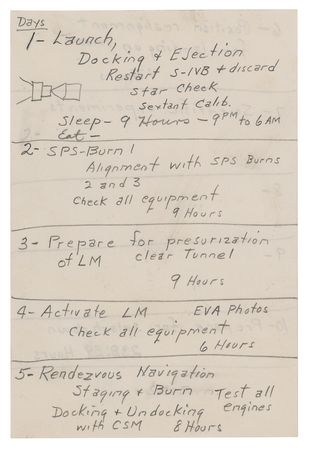 Days
1- Launch,
Docking & Ejection
Restart S-IVB & discard
Star Check
Sextant Calib.
Sleep - 9 Hours - 9PM to 6AM
Eat -
2- SPS-Burn 1
Alignment with SPS Burns
2 and 3
Check all equipment
9 Hours
3- Prepare for presurization
of LM clear Tunnel
9 Hours
4- Activate LM EVA Photos
Check all equipment
6 Hours
5- Rendezvous Navigation
Staging & Burn Test all
Docking & Undocking engines
with CSM 8 Hours